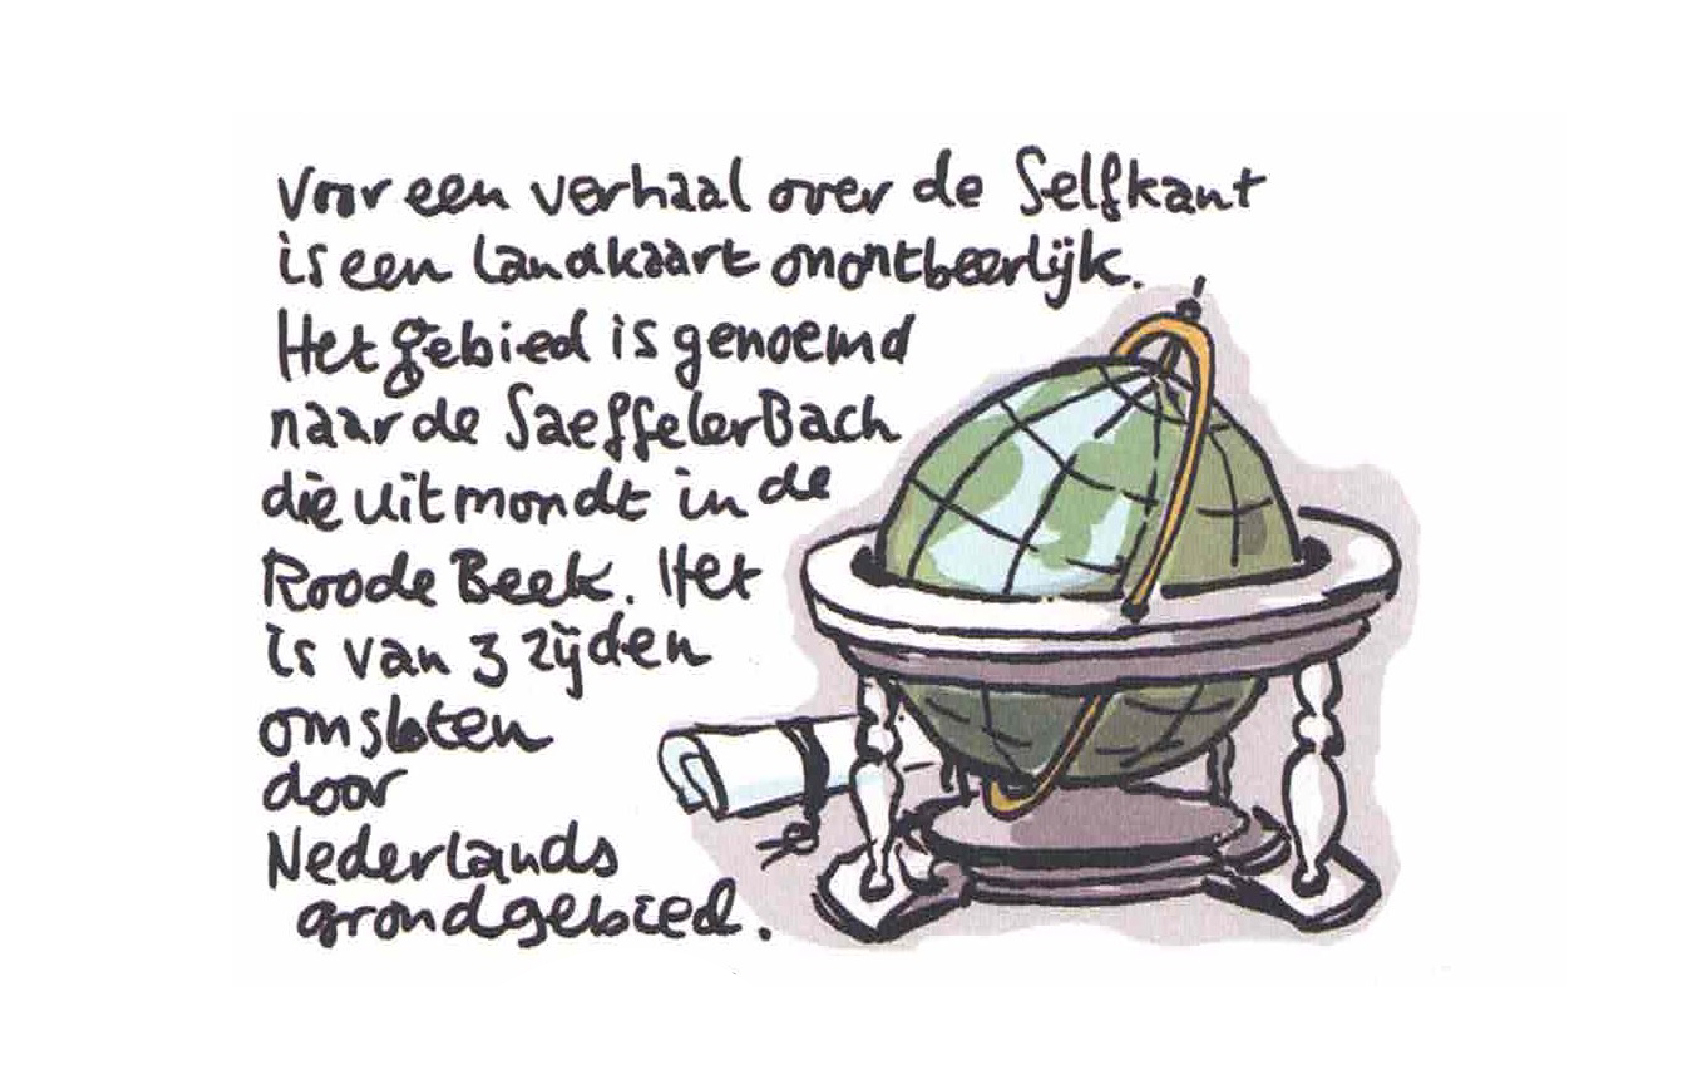 Voor een verhaal over de Selfkant
is een landkaart onontbeerlijk.
Het gebied is genoemd
naar de SaeffelerBach
die uitmondt in de
Roode Beek. Het
is van 3 zijden
omsloten
door
Nederlands
grondgebied.